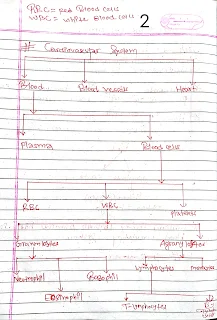 RBC = Red Blood Cells
WBC = White Blood Cells 2
# Cardiovascular System
Blood Blood Vessels Heart
Plasma Blood cells
RBC WBC Platelets
Granulocytes Agranulocytes
Neutrophil Basophil Lymphocytes Monocytes
Eosinophil T-lymphocytes